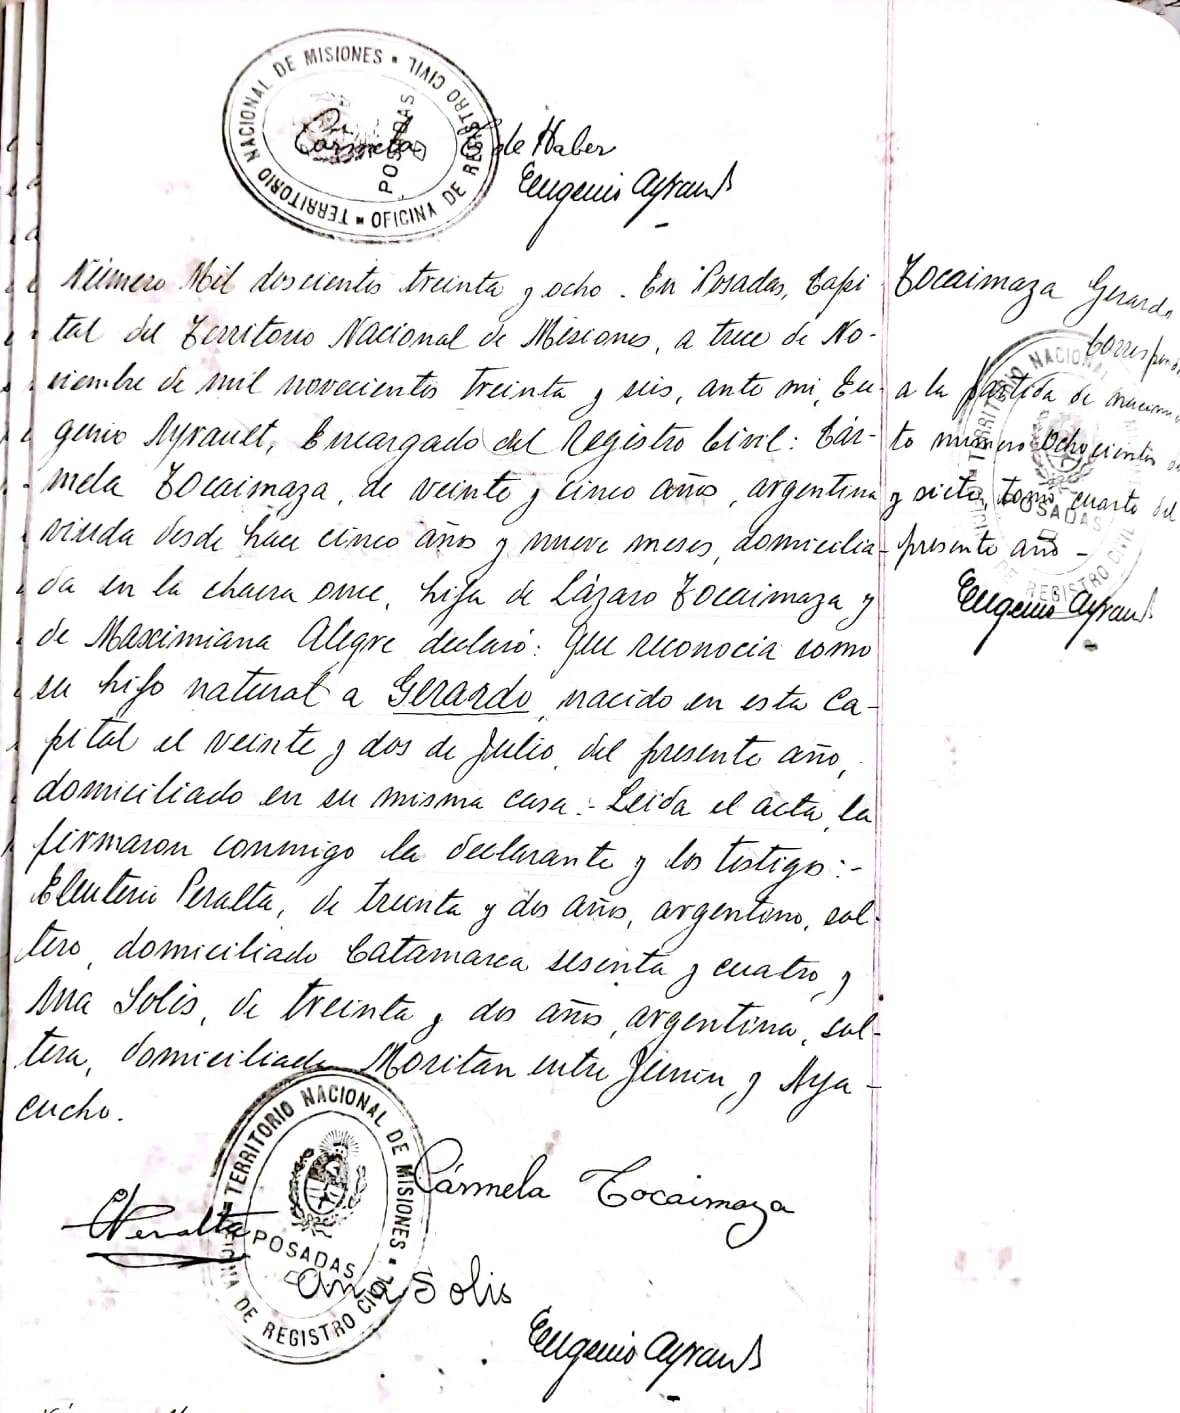 TERRITORIO NACIONAL DE MISIONES
OFICINA DE REGISTRO CIVIL
POSADAS
Carmela C. de Haber
Eugenio Ayrault
Número Mil doscientos treinta y ocho. En Posadas, Capi
tal del Territorio Nacional de Misiones, a trece de No-
viembre de mil novecientos treinta y seis, ante mi, Eu-
genio Ayrault, Encargado del Registro Civil: Cár-
mela Tocaimaza, de veinte y cinco años, argentina
viuda desde hace cinco años y nueve meses, domicilia-
da en la chacra once, hija de Lázaro Tocaimaza y
de Maximiana Alegre declaró: Que reconocia como
su hijo natural a Gerardo, nacido en esta Ca-
pital el veinte y dos de Julio, del presente año,
domiciliado en su misma casa:- Leida el acta, la
firmaron conmigo la declarante y los testigo:-
Eleuterio Peralta, de treinta y dos años, argentino, sol-
tero, domiciliado Catamarca sesenta y cuatro, y
Ana Solis, de treinta y dos años, argentina, sol-
tera, domiciliada Moritan entre Junin, y Aya-
cucho.
Tocaimaza Gerardo
Corresponde
a la partida de nacimien
to número Ochocientos
y siete, tomo cuarto del
presente año -
Eugenio Ayrault
TERRITORIO NACIONAL
POSADAS
DE REGISTRO CIVIL
Cármela Tocaimaza
EPeralta
Ana Solis
Eugenio Ayrault
TERRITORIO NACIONAL DE MISIONES
POSADAS
OFICINA DE REGISTRO CIVIL